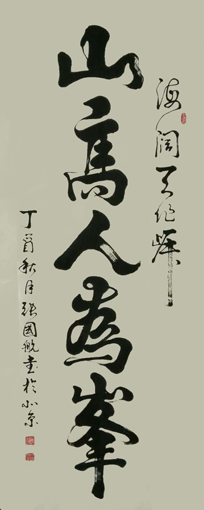 海阔天作岸
山高人為峯
丁酉秋月張國航書於北京